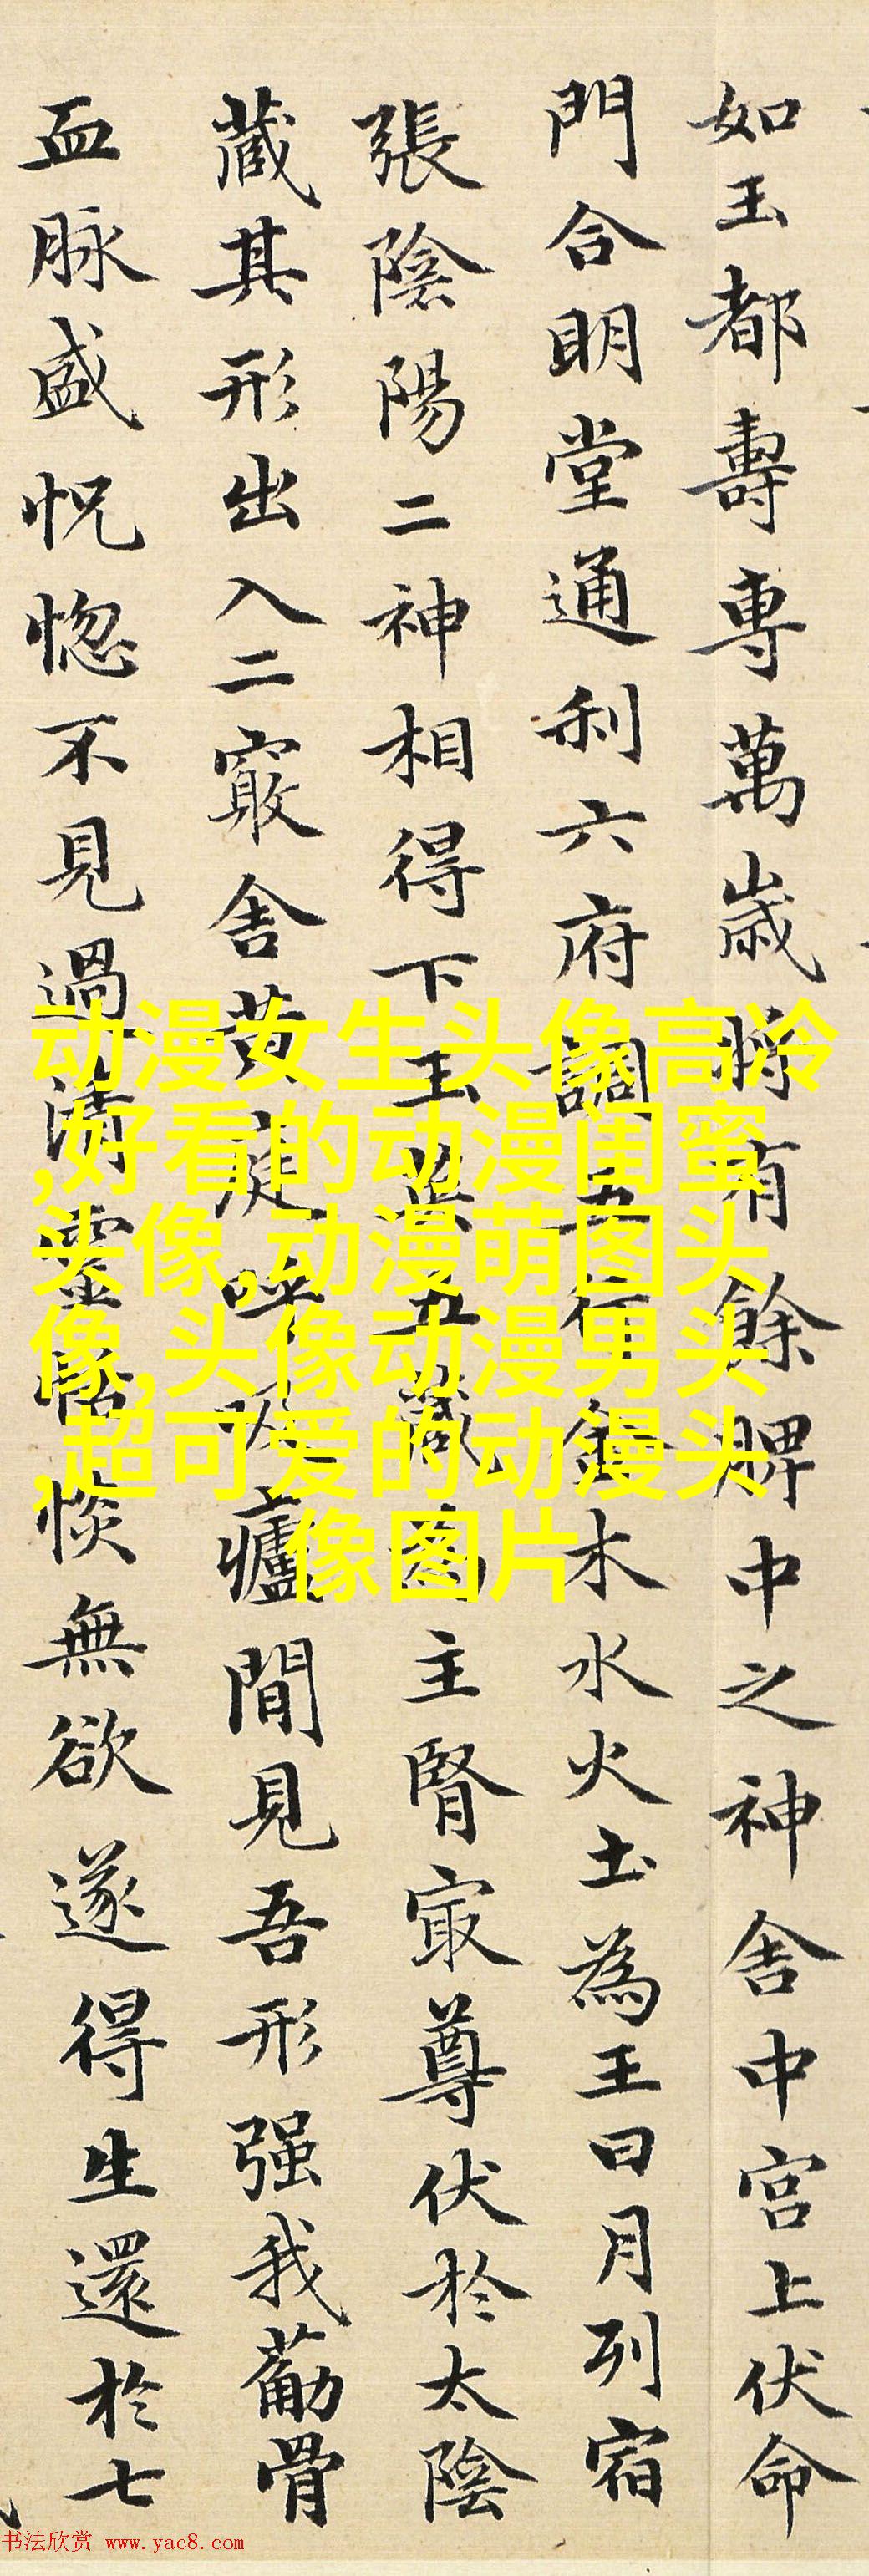 如玉都壽專萬歲將有餘脾中之神舍中宮上伏命
門合明堂通利六府調五行金木水火土為王日月列宿
張陰陽二神相得下玉英五藏為主腎寂尊伏於太陰
藏其形出入二竅舍黃庭呼吸廬間見吾形强我筋骨
血脉盛怳惚不見過清靈恬惔無欲遂得生還於七
动漫女生头像高冷
,好看的动漫闺蜜
头像,动漫萌图头
像,头像动漫男头
,超可爱的动漫头
像图片
书法欣赏 www.yac8.com